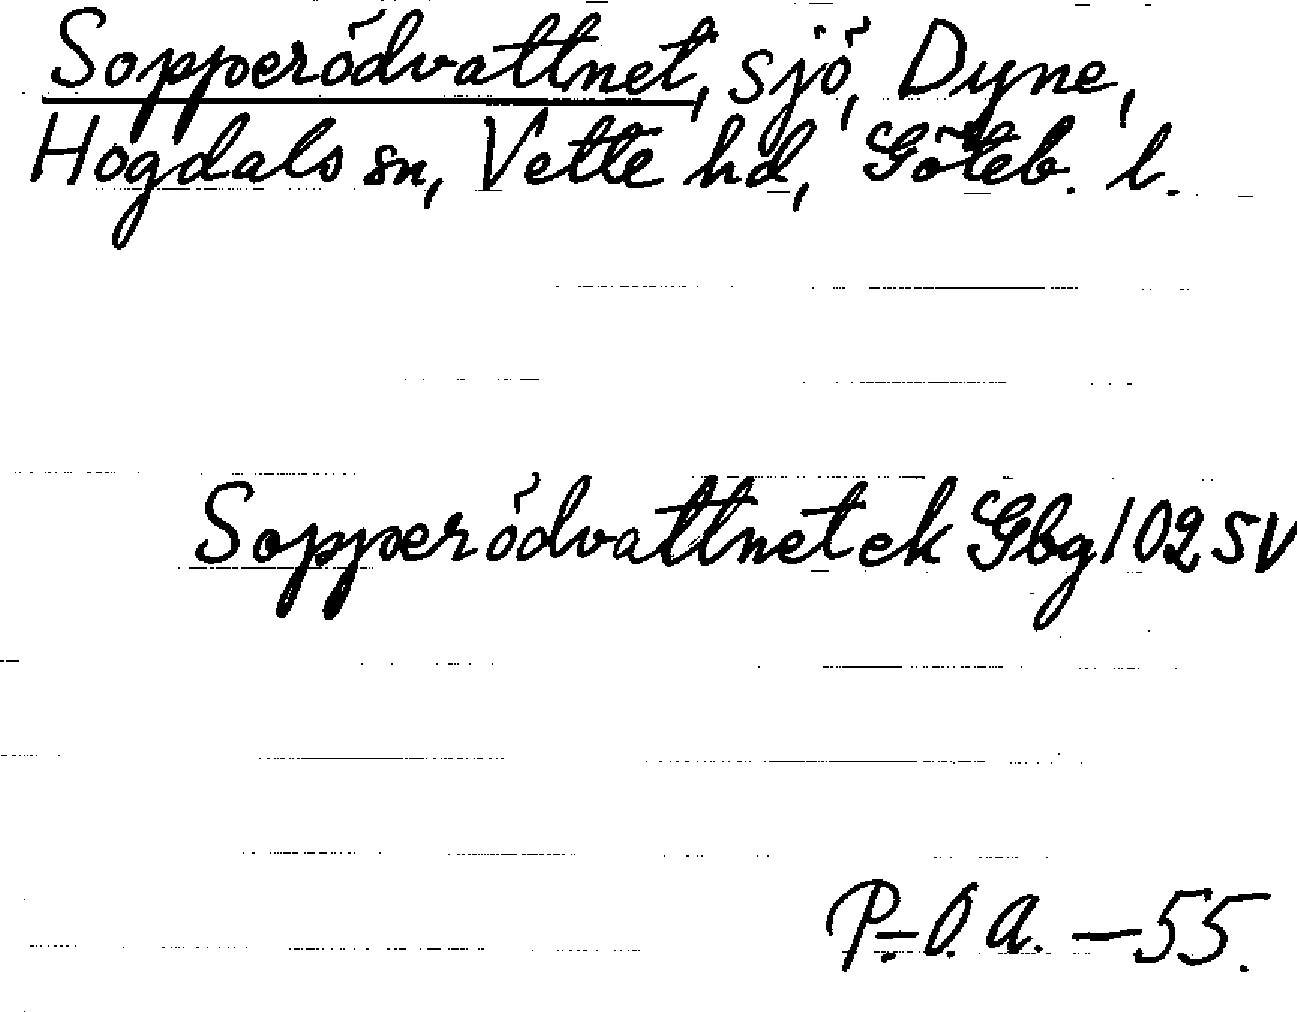 Sopperödvattnet, sjö, Dyne,
Hogdals sn, Vette hd, Göteb. l.
Sopperödvattnet ek Gbg 102 SV
P.-O. A. — 55.